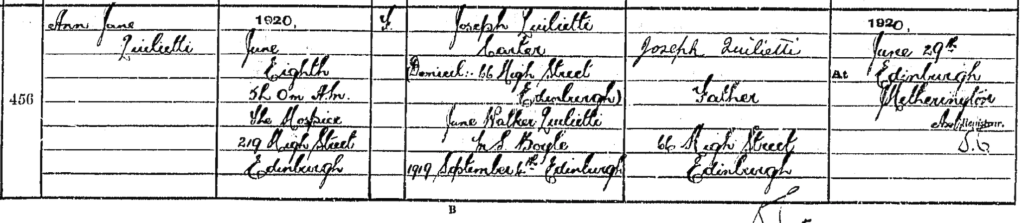 456
Ann Jane
Quilietti
1920.
June
Eighth
5h 0m A.M.
The Hospice
219 High Street
Edinburgh
F.
Joseph Quilietti
Carter
(Domicil:- 66 High Street
Edinburgh)
Jane Walker Quilietti
M.S. Boyle
1919 September 6th Edinburgh
Joseph Quilietti
Father
66 High Street
Edinburgh
1920.
June 29th
At Edinburgh
Hetherington
Registrar.
B